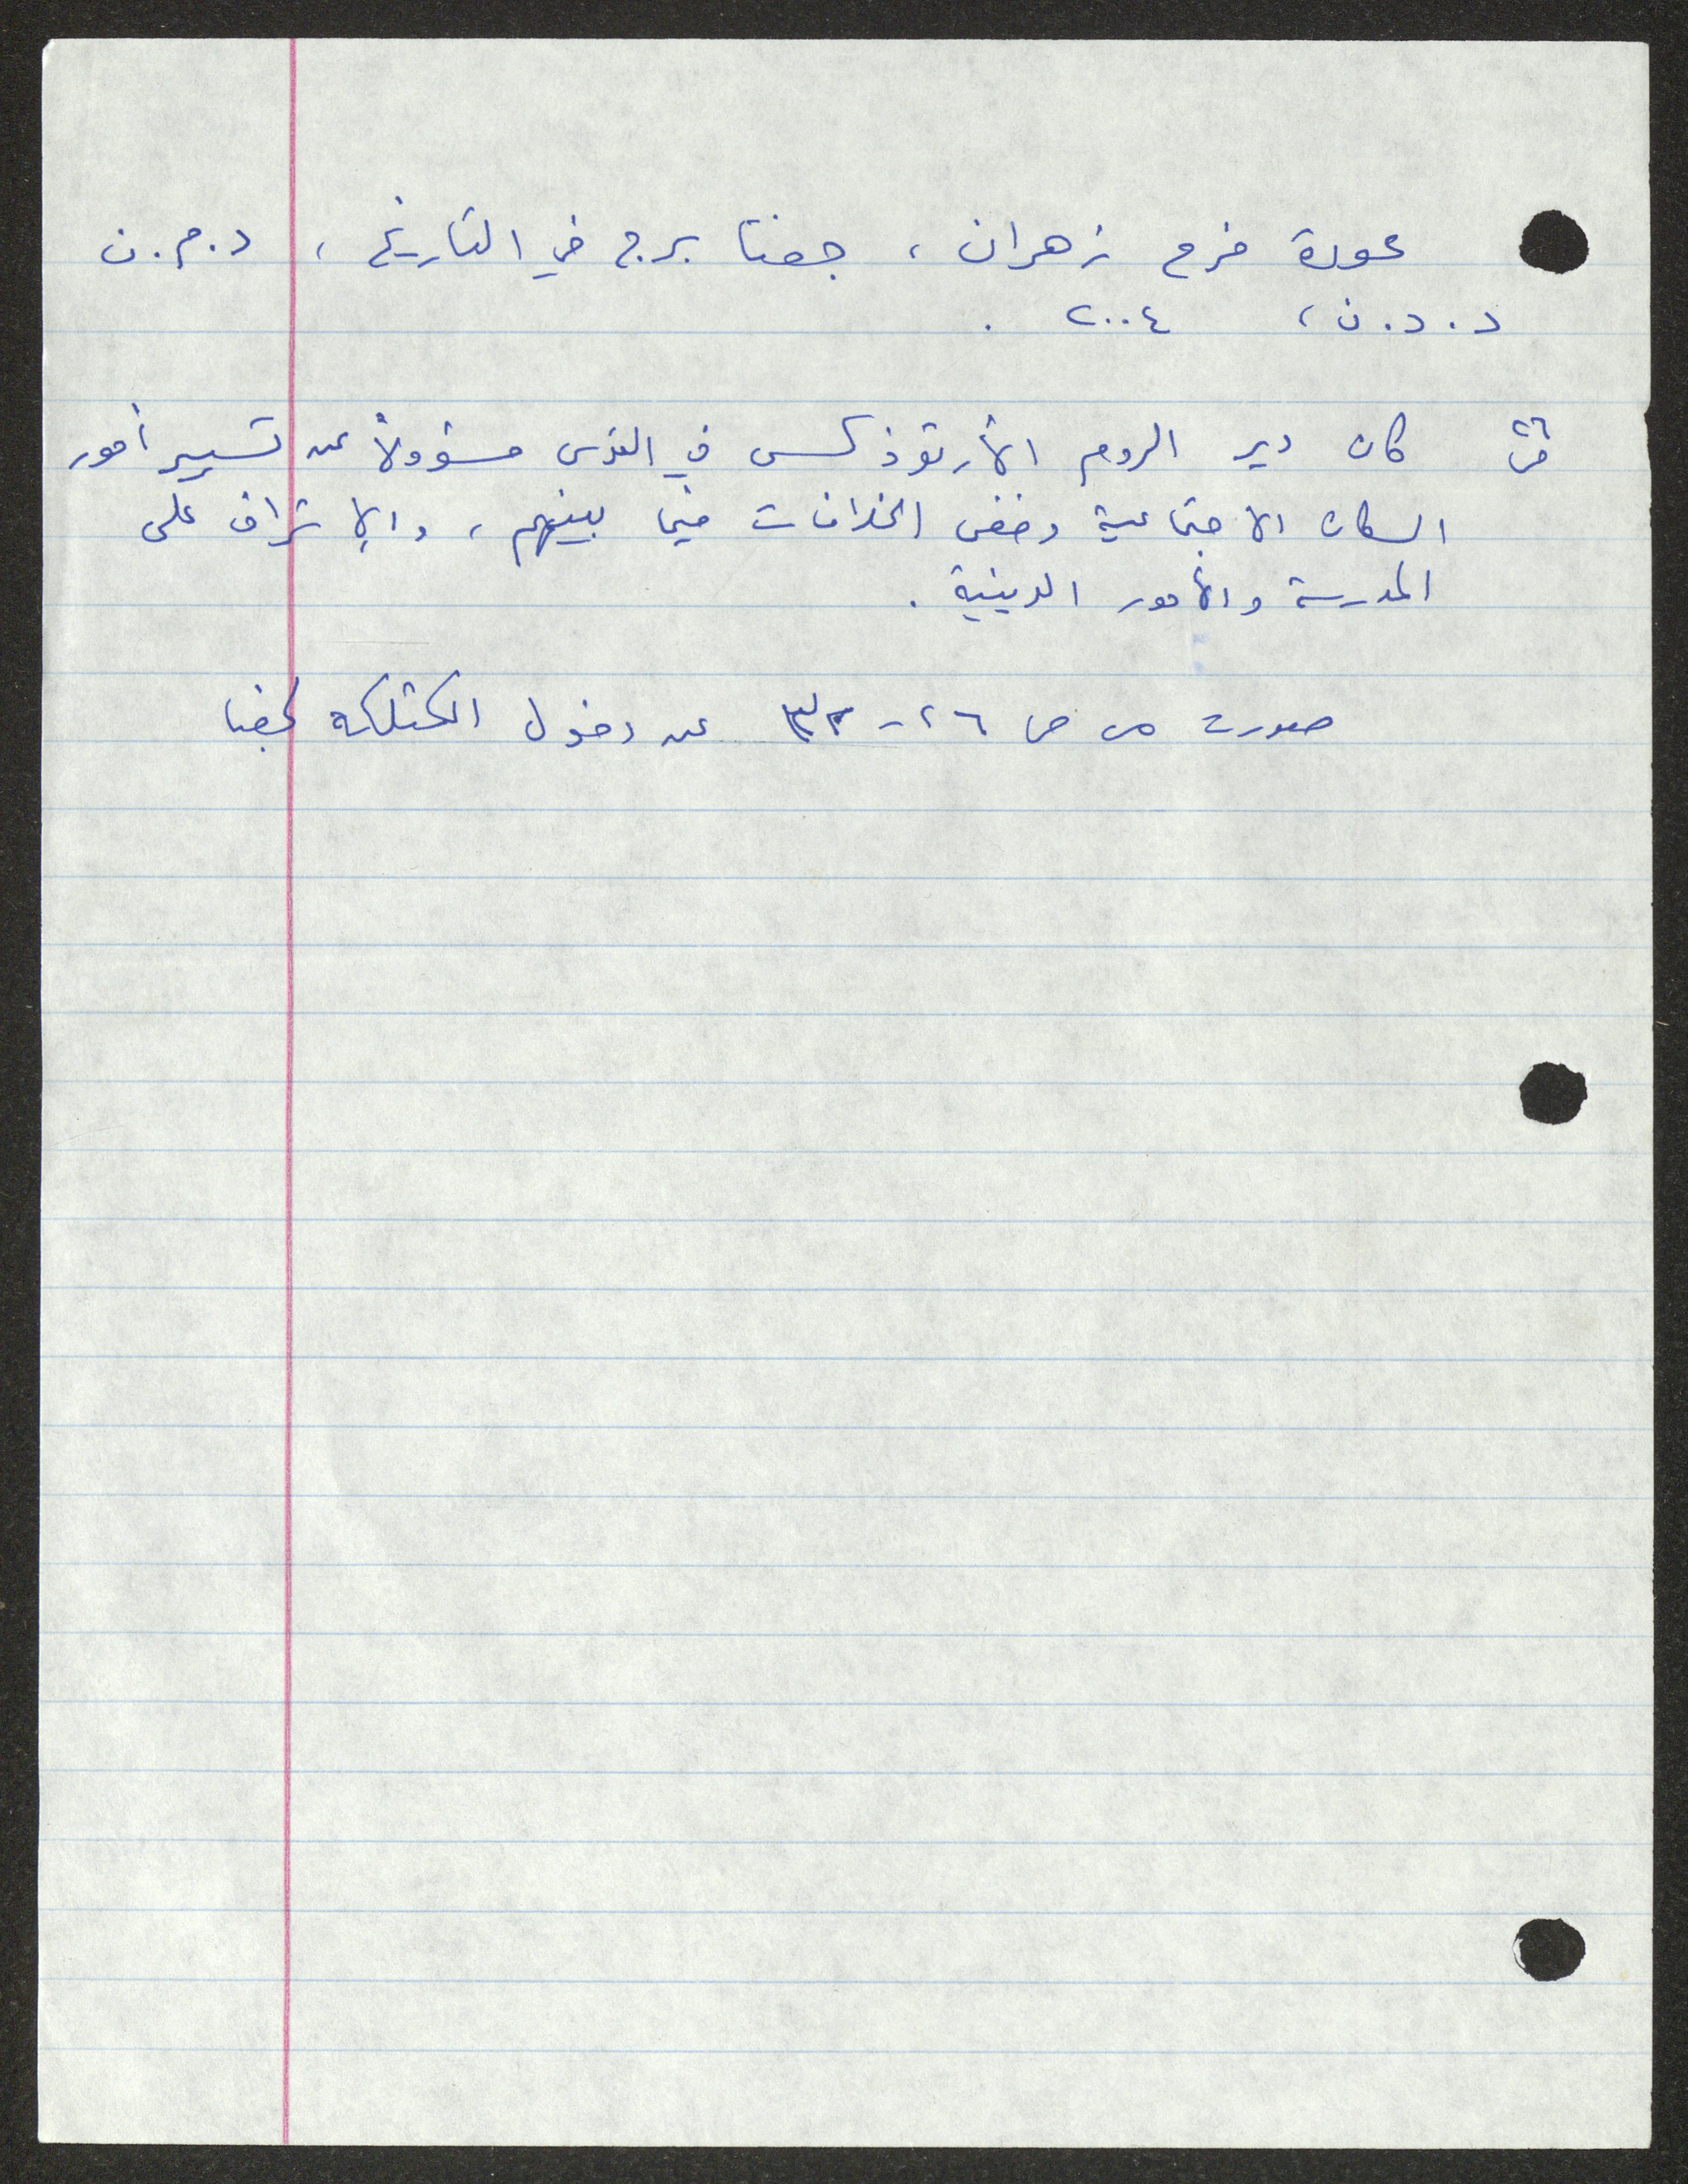 عودة فرح زهران ، جفنا برج في التاريخ ، د.م.ن
د.د.ن ، ٢٠٠٤ .
ص ٢٦ كان دير الروم الأرثوذكسي في القدس مسؤولاً عن تسيير أمور
السكان الاجتماعية وفض الخلافات فيما بينهم ، والإشراف على
المدرسة والأمور الدينية .
صورت من ص ٢٦ - عن دخول الكثلكة لجفنا